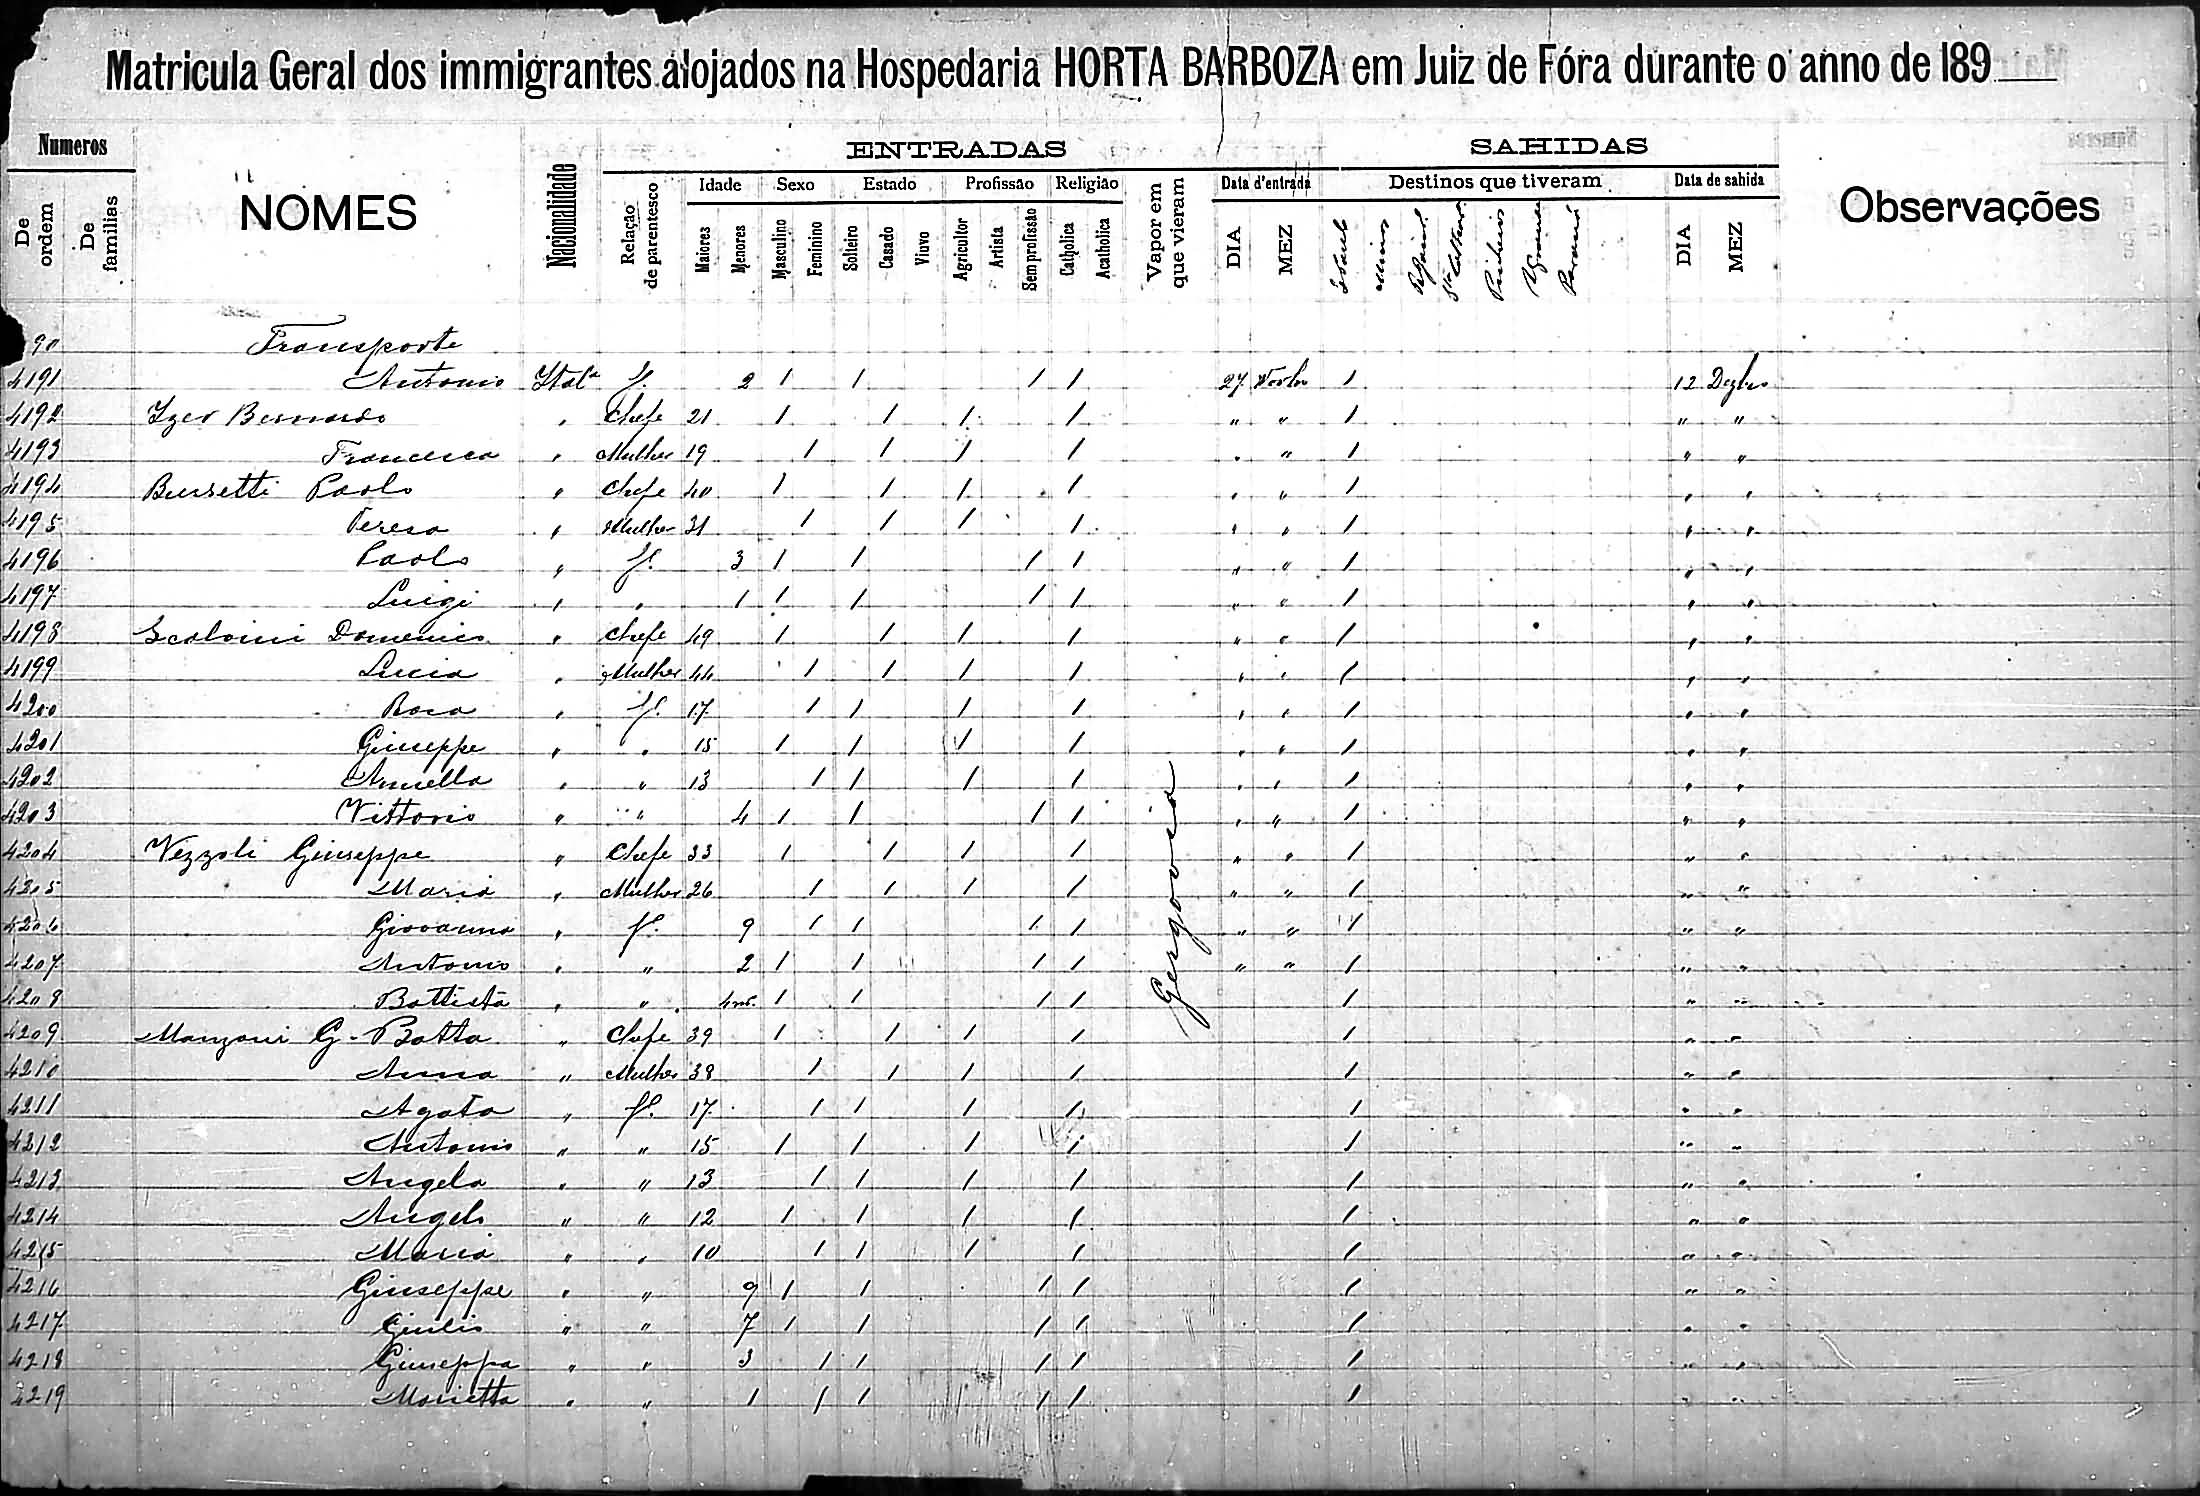 Matricula Geral dos immigrantes alojados na Hospedaria HORTA BARBOZA em Juiz de Fóra durante o anno de 189
Numeros
De ordem
De familias
NOMES
Nacionalidade
ENTRADAS
Relação de parentesco
Idade
Maiores
Menores
Sexo
Masculino
Feminino
Estado
Solteiro
Casado
Viuvo
Profissão
Agricultor
Artista
Sem profissão
Religião
Catholica
Acatholica
Vapor em que vieram
Data d'entrada
DIA
MEZ
SAHIDAS
Destinos que tiveram
S Paulo
Minas
Paraná
Data de sahida
DIA
MEZ
Observações
90 Transporte
4191 Antonio Itala f. 2 1 1 1 1 27 Novbro 1 12 Dezbro
4192 Bernardo " Chefe 21 1 1 1 1 " " 1 " "
4193 Francesca " Mulher 19 1 1 1 1 " " 1 " "
4194 Bussetti Paolo " Chefe 40 1 1 1 1 " " 1 " "
4195 Teresa " Mulher 31 1 1 1 1 " " 1 " "
4196 Paolo " f. 3 1 1 1 1 " " 1 " "
4197 Luigi " " 1 1 1 1 1 " " 1 " "
4198 Scalvini Domenico " Chefe 49 1 1 1 1 " " 1 " "
4199 Lucia " Mulher 44 1 1 1 1 " " 1 " "
4200 Rosa " f. 17 1 1 1 1 " " 1 " "
4201 Giuseppe " " 15 1 1 1 1 " " 1 " "
4202 Annella " " 13 1 1 1 1 " " 1 " "
4203 Vittorio " " 4 1 1 1 1 " " 1 " "
4204 Vezzoli Giuseppe " Chefe 33 1 1 1 1 " " 1 " "
4205 Maria " Mulher 26 1 1 1 1 " " 1 " "
4206 Giovanna " f. 9 1 1 1 1 " " 1 " "
4207 Antonio " " 2 1 1 1 1 " " 1 " "
4208 Battista " " 4 m. 1 1 1 1 1 " "
4209 Manzoni G. Batta " Chefe 39 1 1 1 1 1 " "
4210 Anna " Mulher 38 1 1 1 1 1 " "
4211 Agata " f. 17 1 1 1 1 1 " "
4212 Antonio " " 15 1 1 1 1 1 " "
4213 Angela " " 13 1 1 1 1 1 " "
4214 Angelo " " 12 1 1 1 1 1 " "
4215 Maria " " 10 1 1 1 1 1 " "
4216 Giuseppe " " 9 1 1 1 1 1 " "
4217 Giulio " " 7 1 1 1 1 1 " "
4218 Giuseppa " " 3 1 1 1 1 1 " "
4219 Marietta " " 1 1 1 1 1 1 " "
Gergovia